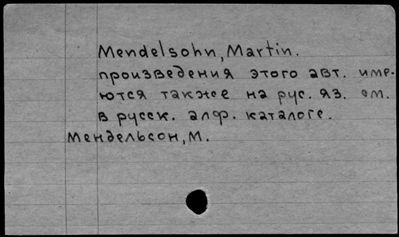 Mendelsohn, Martin.
произведения этого авт. име-
ются также на рус. яз. см.
в русск. алф. каталоге.
Мендельсон, М.